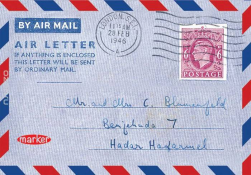 BY AIR MAIL
AIR LETTER
IF ANYTHING IS ENCLOSED
THIS LETTER WILL BE SENT
BY ORDINARY MAIL.
LONDON
11 15 AM
28 FEB
1946
POSTAGE
Mr. and Mrs. C. Blumenfeld
7
Hadar Hacarmel
marker